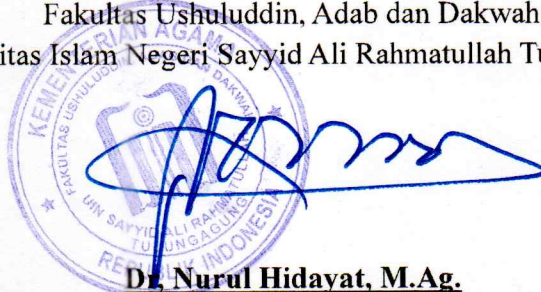 Fakultas Ushuluddin, Adab dan Dakwah
itas Islam Negeri Sayyid Ali Rahmatullah Tu
KEMENTERIAN AGAMA
FAKULTAS USHULUDDIN, DAKWAH
UIN SAYYID ALI RAHMATULLAH
TULUNGAGUNG
REPUBLIK INDONESIA
Dr. Nurul Hidayat, M.Ag.